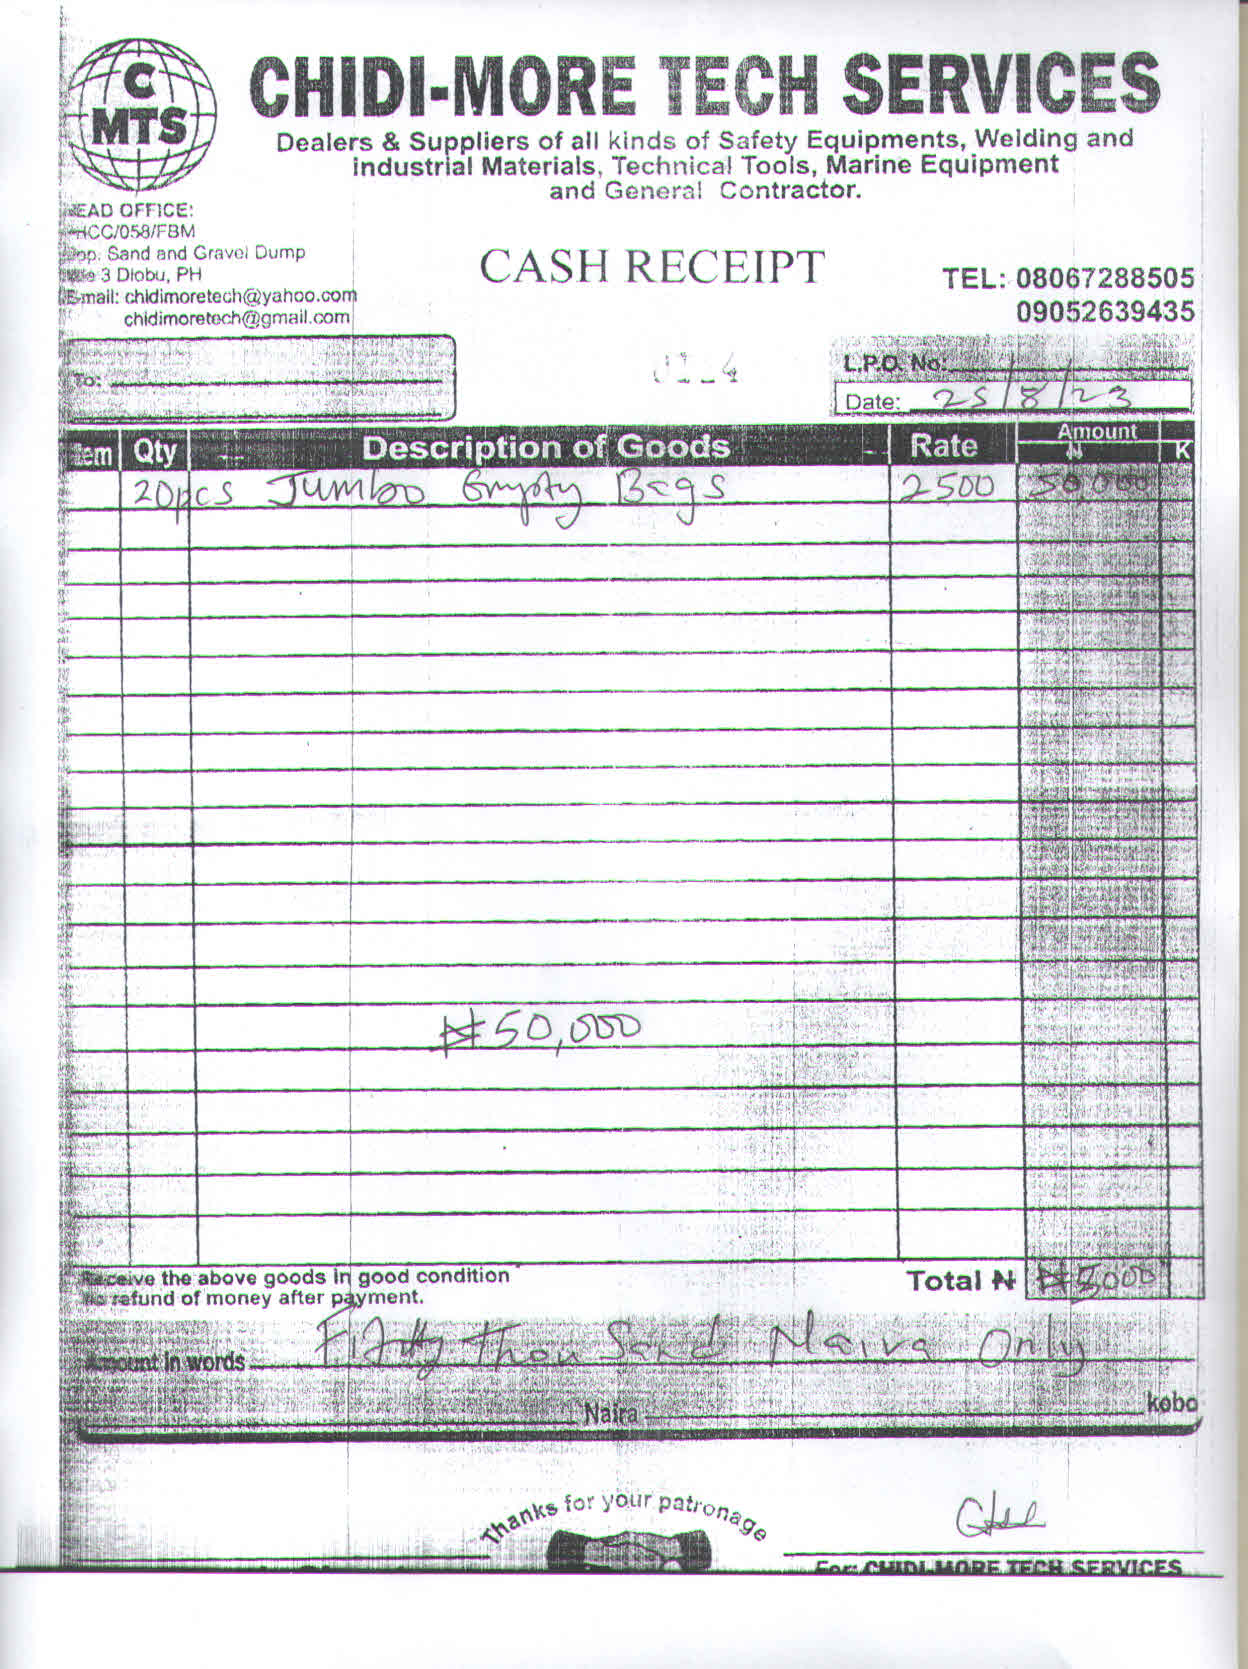 C
MTS
CHIDI-MORE TECH SERVICES
Dealers & Suppliers of all kinds of Safety Equipments, Welding and
Industrial Materials, Technical Tools, Marine Equipment
and General Contractor.
EAD OFFICE:
HCC/058/FBM
op. Sand and Gravel Dump
3 Diobu, PH
E-mail: chidimoretech@yahoo.com
chidimoretech@gmail.com
CASH RECEIPT
TEL: 08067288505
09052639435
To:
L.P.O. No:
Date: 25/8/23
tem Qty Description of Goods Rate Amount ₦ K
20pcs Jumbo Empty Bags 2500 50,000
₦50,000
Receive the above goods in good condition
No refund of money after payment.
Total ₦
Amount in words Fifty Thousand Naira Only
Naira kobo
Thanks for your patronage
For: CHIDI-MORE TECH SERVICES